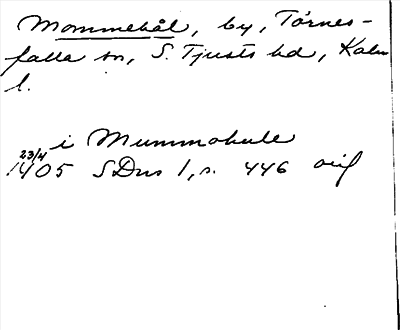 Mommehål, by, Törnes-
falla sn, S. Tjusts hd, Kalm
l.
i Mummohule
23/4
1405 SDns 1, s. 446 orig